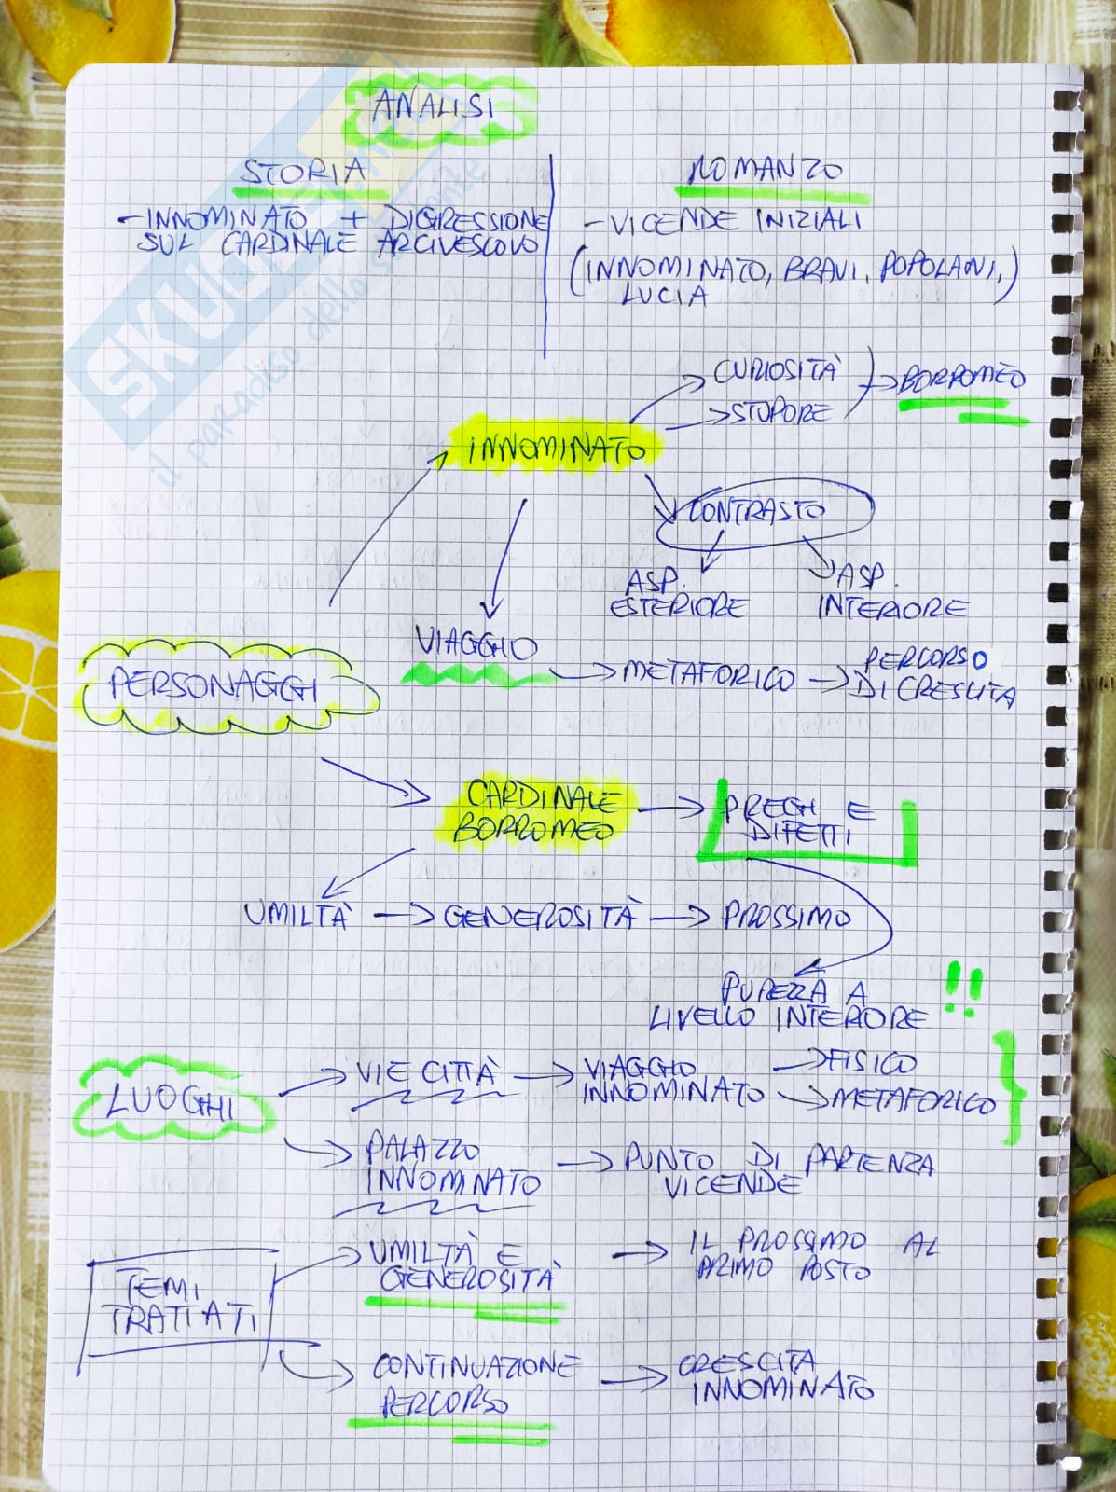 ANALISI
STORIA
- INNOMINATO + DIGRESSIONE
SUL CARDINALE ARCIVESCOVO
ROMANZO
- VICENDE INIZIALI
(INNOMINATO, BRAVI, POPOLANI,)
LUCIA
CURIOSITÀ
STUPORE
BORROMEO
INNOMINATO
CONTRASTO
ASP.
ESTERIORE
ASP.
INTERIORE
VIAGGIO
METAFORICO
PERCORSO
DI CRESCITA
PERSONAGGI
CARDINALE
BORROMEO
PREGI E
DIFETTI
UMILTÀ → GENEROSITÀ → PROSSIMO
PUREZZA A
LIVELLO INTERIORE !!
LUOGHI
VIE CITTÀ
VIAGGIO
INNOMINATO
FISICO
METAFORICO
PALAZZO
INNOMINATO
PUNTO DI PARTENZA
VICENDE
TEMI
TRATTATI
UMILTÀ E
GENEROSITÀ
IL PROSSIMO AL
PRIMO POSTO
CONTINUAZIONE
PERCORSO
CRESCITA
INNOMINATO
il paradiso dello studente